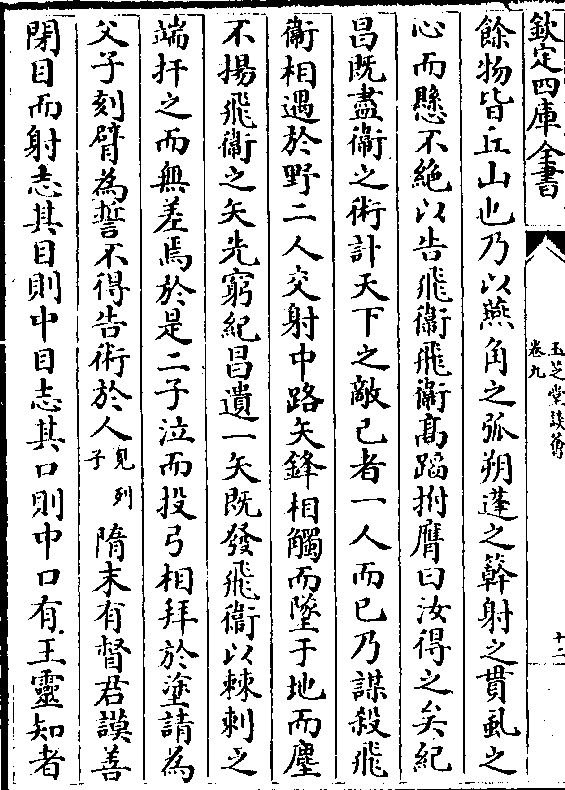 欽定四庫全書
玉芝堂談薈
卷九
十二
餘物皆丘山也乃以燕角之弧朔蓬之簳射之貫虱之
心而懸不絕以告飛衞飛衞髙蹈拊膺曰汝得之矣紀
昌既盡衞之術計天下之敵已者一人而已乃謀殺飛
衞相遇於野二人交射中路矢鋒相觸而墜于地而塵
不揚飛衞之矢先窮紀昌遺一矢既發飛衞以棘刺之
端扞之而無差焉於是二子泣而投弓相拜於塗請為
父子刻臂為誓不得告術於人見列子 隋末有督君謨善
閉目而射志其目則中目志其口則中口有王靈知者